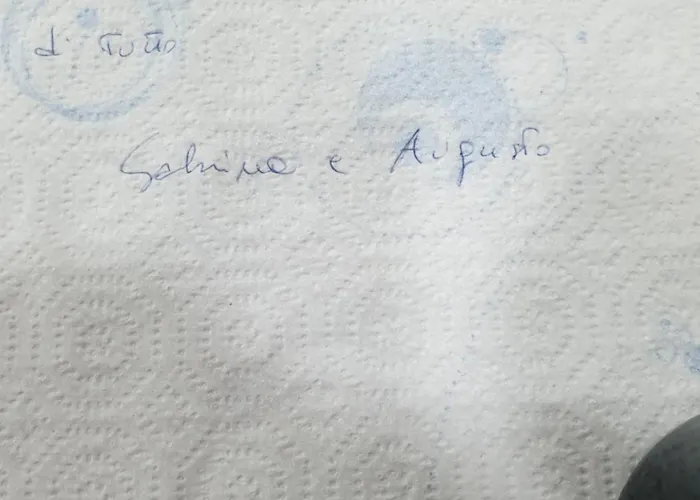 di tutto
Sabrina e Augusto